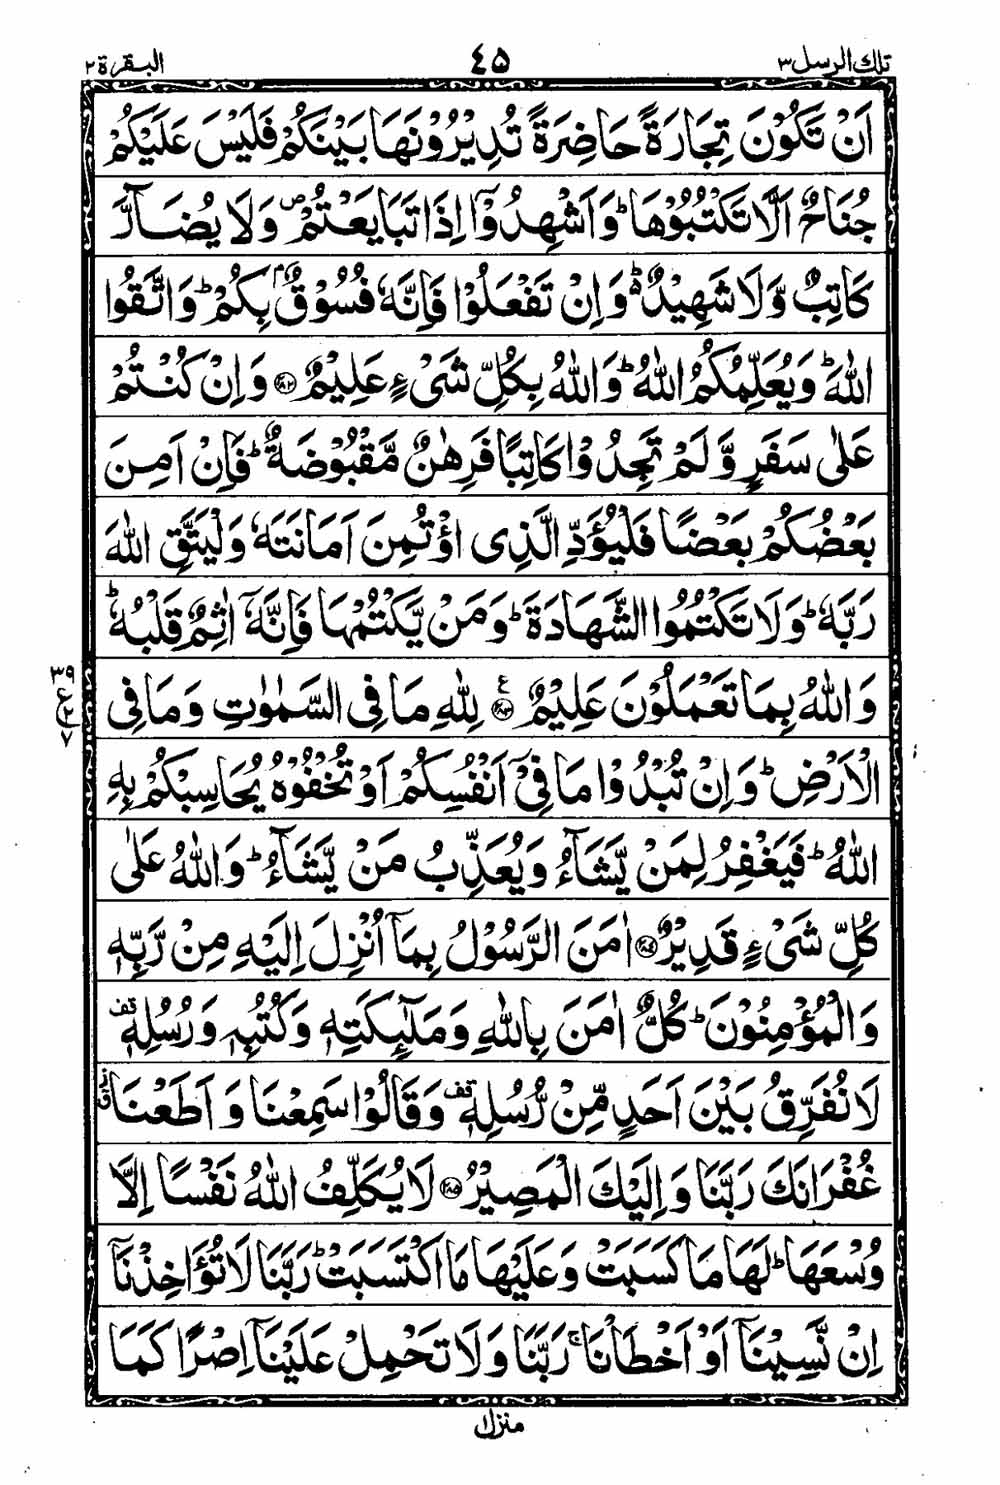 تلك الرسل ٣ ٤٥ البقرة ٢
اَنۡ تَكُوۡنَ تِجَارَةً حَاضِرَةً تُدِيۡرُوۡنَهَا بَيۡنَكُمۡ فَلَيۡسَ عَلَيۡكُمۡ
جُنَاحٌ اَلَّا تَكۡتُبُوۡهَا ؕ وَاَشۡهِدُوۡۤا اِذَا تَبَايَعۡتُمۡ ۪ وَلَا يُضَآرَّ
كَاتِبٌ وَّلَا شَهِيۡدٌ ؕ۬ وَاِنۡ تَفۡعَلُوۡا فَاِنَّهٗ فُسُوۡقٌۢ بِكُمۡ ؕ وَاتَّقُوا
اللّٰهَ ؕ وَيُعَلِّمُكُمُ اللّٰهُ ؕ وَاللّٰهُ بِكُلِّ شَىۡءٍ عَلِيۡمٌ ﴿۲۸۲﴾ وَاِنۡ كُنۡتُمۡ
عَلٰى سَفَرٍ وَّلَمۡ تَجِدُوۡا كَاتِبًا فَرِهٰنٌ مَّقۡبُوۡضَةٌ ؕ فَاِنۡ اَمِنَ
بَعۡضُكُمۡ بَعۡضًا فَلۡيُؤَدِّ الَّذِى اؤۡتُمِنَ اَمَانَتَهٗ وَلۡيَتَّقِ اللّٰهَ
رَبَّهٗ ؕ وَلَا تَكۡتُمُوا الشَّهَادَةَ ؕ وَمَنۡ يَّكۡتُمۡهَا فَاِنَّهٗۤ اٰثِمٌ قَلۡبُهٗ ؕ
وَاللّٰهُ بِمَا تَعۡمَلُوۡنَ عَلِيۡمٌ ﴿۲۸۳﴾ ع لِلّٰهِ مَا فِى السَّمٰوٰتِ وَمَا فِى
٣٩
ع
٢
٧
الۡاَرۡضِ ؕ وَاِنۡ تُبۡدُوۡا مَا فِىۡۤ اَنۡفُسِكُمۡ اَوۡ تُخۡفُوۡهُ يُحَاسِبۡكُمۡ بِهِ
اللّٰهُ ؕ فَيَغۡفِرُ لِمَنۡ يَّشَآءُ وَيُعَذِّبُ مَنۡ يَّشَآءُ ؕ وَاللّٰهُ عَلٰى
كُلِّ شَىۡءٍ قَدِيۡرٌ ﴿۲۸۴﴾ اٰمَنَ الرَّسُوۡلُ بِمَاۤ اُنۡزِلَ اِلَيۡهِ مِنۡ رَّبِّهٖ
وَالۡمُؤۡمِنُوۡنَ ؕ كُلٌّ اٰمَنَ بِاللّٰهِ وَمَلٰٓئِكَتِهٖ وَكُتُبِهٖ وَرُسُلِهٖ قف
لَا نُفَرِّقُ بَيۡنَ اَحَدٍ مِّنۡ رُّسُلِهٖ قف وَقَالُوۡا سَمِعۡنَا وَاَطَعۡنَا
غُفۡرَانَكَ رَبَّنَا وَاِلَيۡكَ الۡمَصِيۡرُ ﴿۲۸۵﴾ لَا يُكَلِّفُ اللّٰهُ نَفۡسًا اِلَّا
وُسۡعَهَا ؕ لَهَا مَا كَسَبَتۡ وَعَلَيۡهَا مَا اكۡتَسَبَتۡ ؕ رَبَّنَا لَا تُؤَاخِذۡنَاۤ
اِنۡ نَّسِيۡنَاۤ اَوۡ اَخۡطَاۡنَا ۚ رَبَّنَا وَلَا تَحۡمِلۡ عَلَيۡنَاۤ اِصۡرًا كَمَا
منزل ١